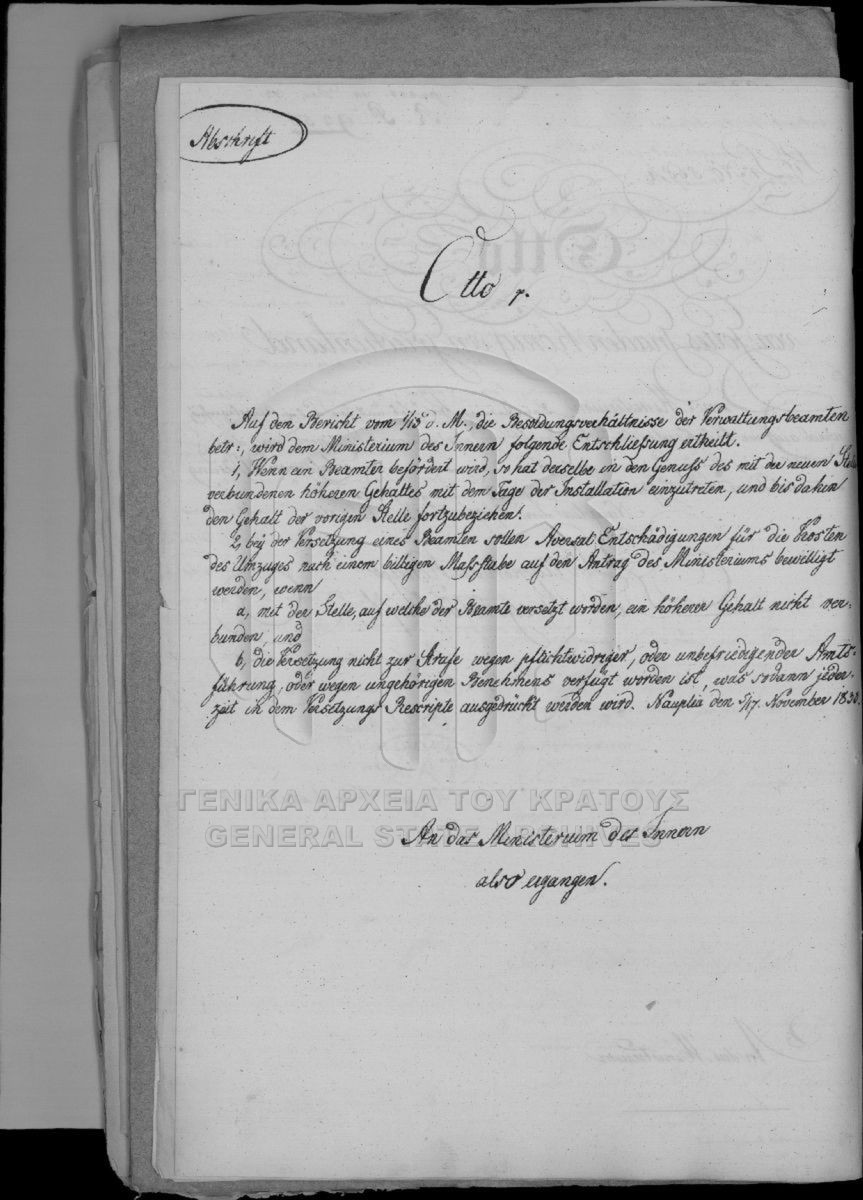 Abschrift
Otto r.
Auf den Bericht vom 1/13 d. M., die Besoldungsverhältnisse der Verwaltungsbeamten
betr:, wird dem Ministerium des Innern folgende Entschließung ertheilt.
1, Wenn ein Beamter befördert wird, so hat derselbe in den Genuß des mit der neuen Stelle
verbundenen höheren Gehaltes mit dem Tage der Installation einzutreten, und bis dahin
den Gehalt der vorigen Stelle fortzubeziehen.
2, bey der Versetzung eines Beamten sollen Aversal Entschädigungen für die Kosten
des Umzuges nach einem billigen Maßstabe auf den Antrag des Ministeriums bewilligt
werden, wenn
a, mit der Stelle, auf welche der Beamte versetzt worden, ein höherer Gehalt nicht ver-
bunden, und
b, die Versetzung nicht zur Strafe wegen pflichtwidriger, oder unbefriedigender Amts-
führung, oder wegen ungehörigen Benehmens verfügt worden ist, was sodann jeder-
zeit in dem Versetzungs Rescripte ausgedrückt werden wird. Nauplia den 5/17. November
ΓΕΝΙΚΑ ΑΡΧΕΙΑ ΤΟΥ ΚΡΑΤΟΥΣ
GENERAL STATE ARCHIVES
An das Ministerium des Innern
also ergangen.